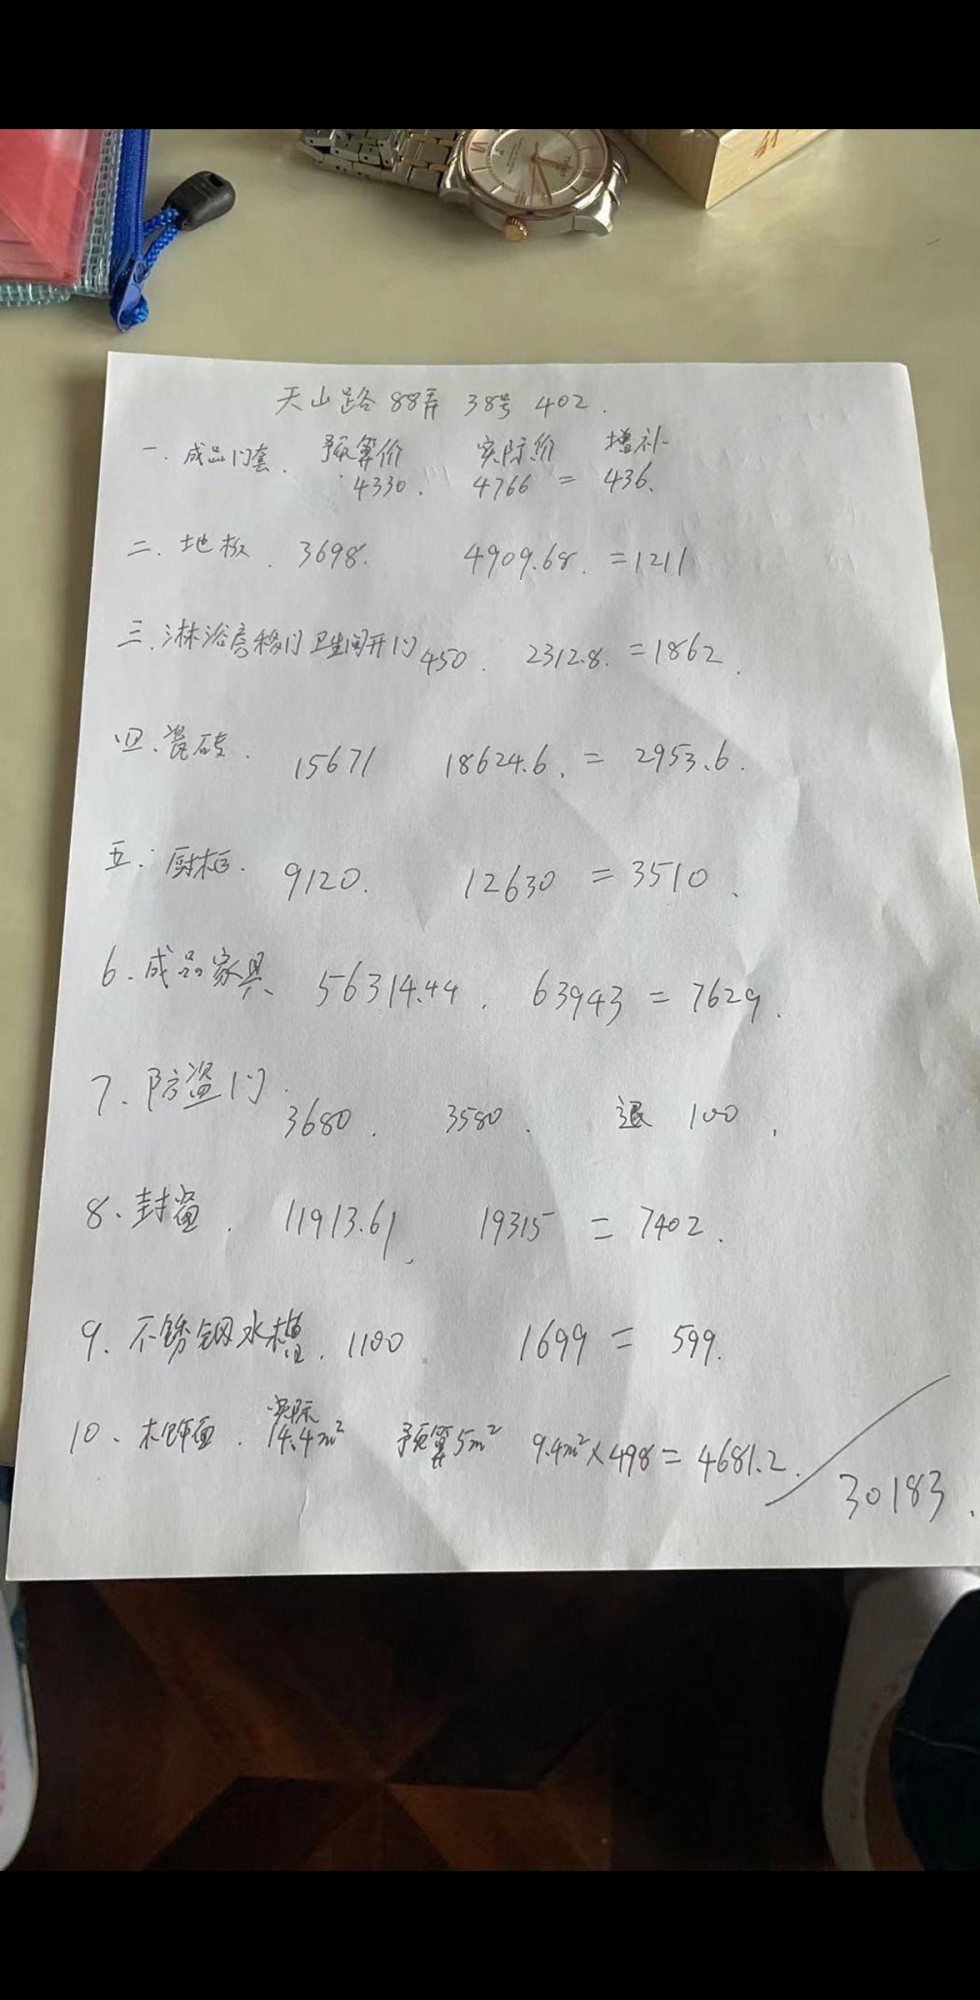 天山路 88弄 38号 402.
一. 成品门套. 预算价 实际价 增补
4330. 4766 = 436.
二. 地板. 3698. 4909.68. =1211
三. 淋浴房移门 卫生间开门 450. 2312.8. =1862.
四. 瓷砖. 15671 18624.6. = 2953.6.
五. 厨柜. 9120. 12630 = 3510.
6. 成品家具、 56314.44. 63943 = 7629.
7. 防盗门.
3680. 3580. 退 100.
8. 封 . 11913.61. 19315 = 7402.
9. 不锈钢水槽. 1100. 1699 = 599.
10. 木饰面. 实际 14.4m² 预算5m² 9.4m²×498 = 4681.2.
30183.